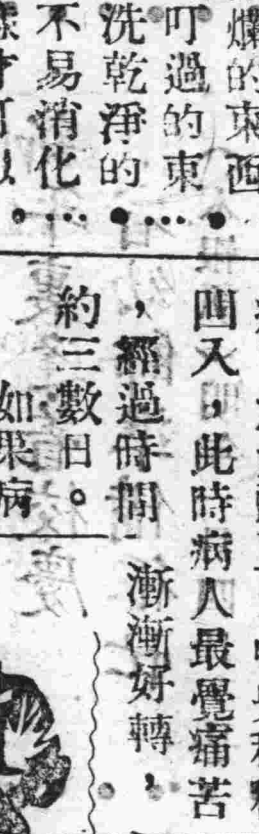 爛的東西
叮過的東
洗乾淨的
不易消化
凹入，此時病人最覺痛苦
，經過時間
約三數日。
如果病
漸漸好轉，